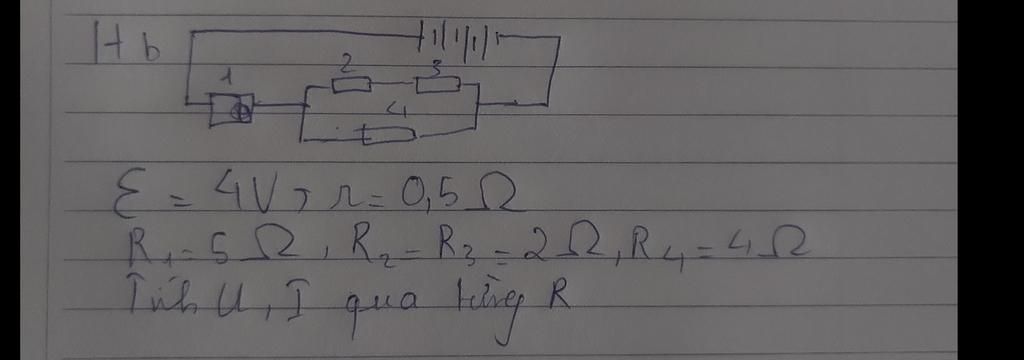 H b
1
2
3
4
Ɛ = 4V, r = 0,5 Ω
R₁ = 5 Ω, R₂ = R₃ = 2 Ω, R₄ = 4 Ω
Tính U, I qua từng R